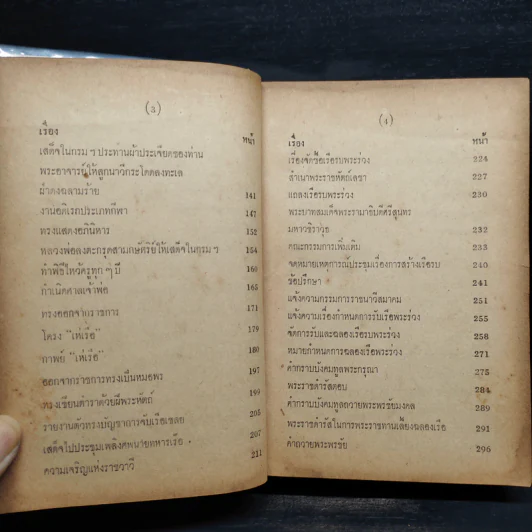 (๓)
เรื่อง
หน้า
เสด็จในกรม ฯ ประทานผ้าประเจียดของท่าน
พระอาจารย์ให้ลูกนาวีกระโดดลงทะเล
ฝ่าดงฉลามร้าย 141
งานอดิเรกประเภทกีฬา 147
ทรงแสดงอภินิหาร 152
หลวงพ่อลงตะกรุดสามกษัตริย์ให้เสด็จในกรม ฯ 154
ทำพิธีไหว้ครูทุก ๆ ปี 160
กำเนิดศาลเจ้าพ่อ 165
ทรงออกจากราชการ 171
โคลง "เห่เรือ" 179
กาพย์ "เห่เรือ" 180
ออกจากราชการทรงเป็นหมอพร 197
ทรงเขียนตำราด้วยฝีพระหัตถ์ 199
รายงานตัวทรงบัญชาการจับเรือเชลย 205
เสด็จไปประชุมเพลิงศพนายทหารเรือ 207
ความเจริญแห่งราชนาวี 211
(4)
เรื่อง
หน้า
เรื่องจัดซื้อเรือรบพระร่วง 224
สำเนาพระราชหัตถ์เลขา 227
แถลงเรือรบพระร่วง 230
พระบาทสมเด็จพระรามาธิบดีศรีสุนทร
มหาวชิราวุธ 232
คณะกรรมการเพิ่มเติม 233
จดหมายเหตุการณ์ประชุมเรื่องการสร้างเรือรบ 240
ข้อปรึกษา 241
แจ้งความกรรมการราชนาวีสมาคม 251
แจ้งความเรื่องกำหนดการรับเรือพระร่วง 255
จัดการรับและฉลองเรือรบพระร่วง 258
หมายกำหนดการฉลองเรือพระร่วง 271
คำกราบบังคมทูลพระกรุณา 275
พระราชดำรัสตอบ 284
คำกราบบังคมทูลถวายพระพรชัยมงคล 289
พระราชดำรัสในการพระราชทานเลี้ยงฉลองเรือ 291
คำถวายพระพรชัย 296